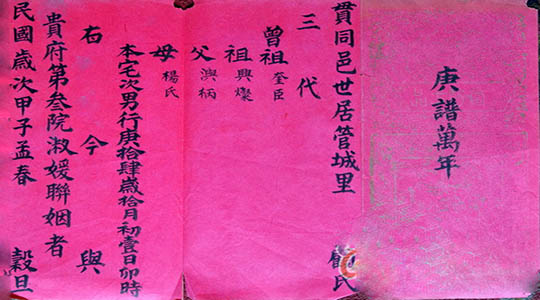 庚譜萬年
貫同邑世居管城里 顧氏
三代
曾祖 奎臣
祖 興燦
父 澳柄
母 楊氏
本宅次男行庚拾肆歲拾月初壹日卯時
右今與
貴府第叁院淑媛聯姻者
民國歲次甲子孟春 穀旦